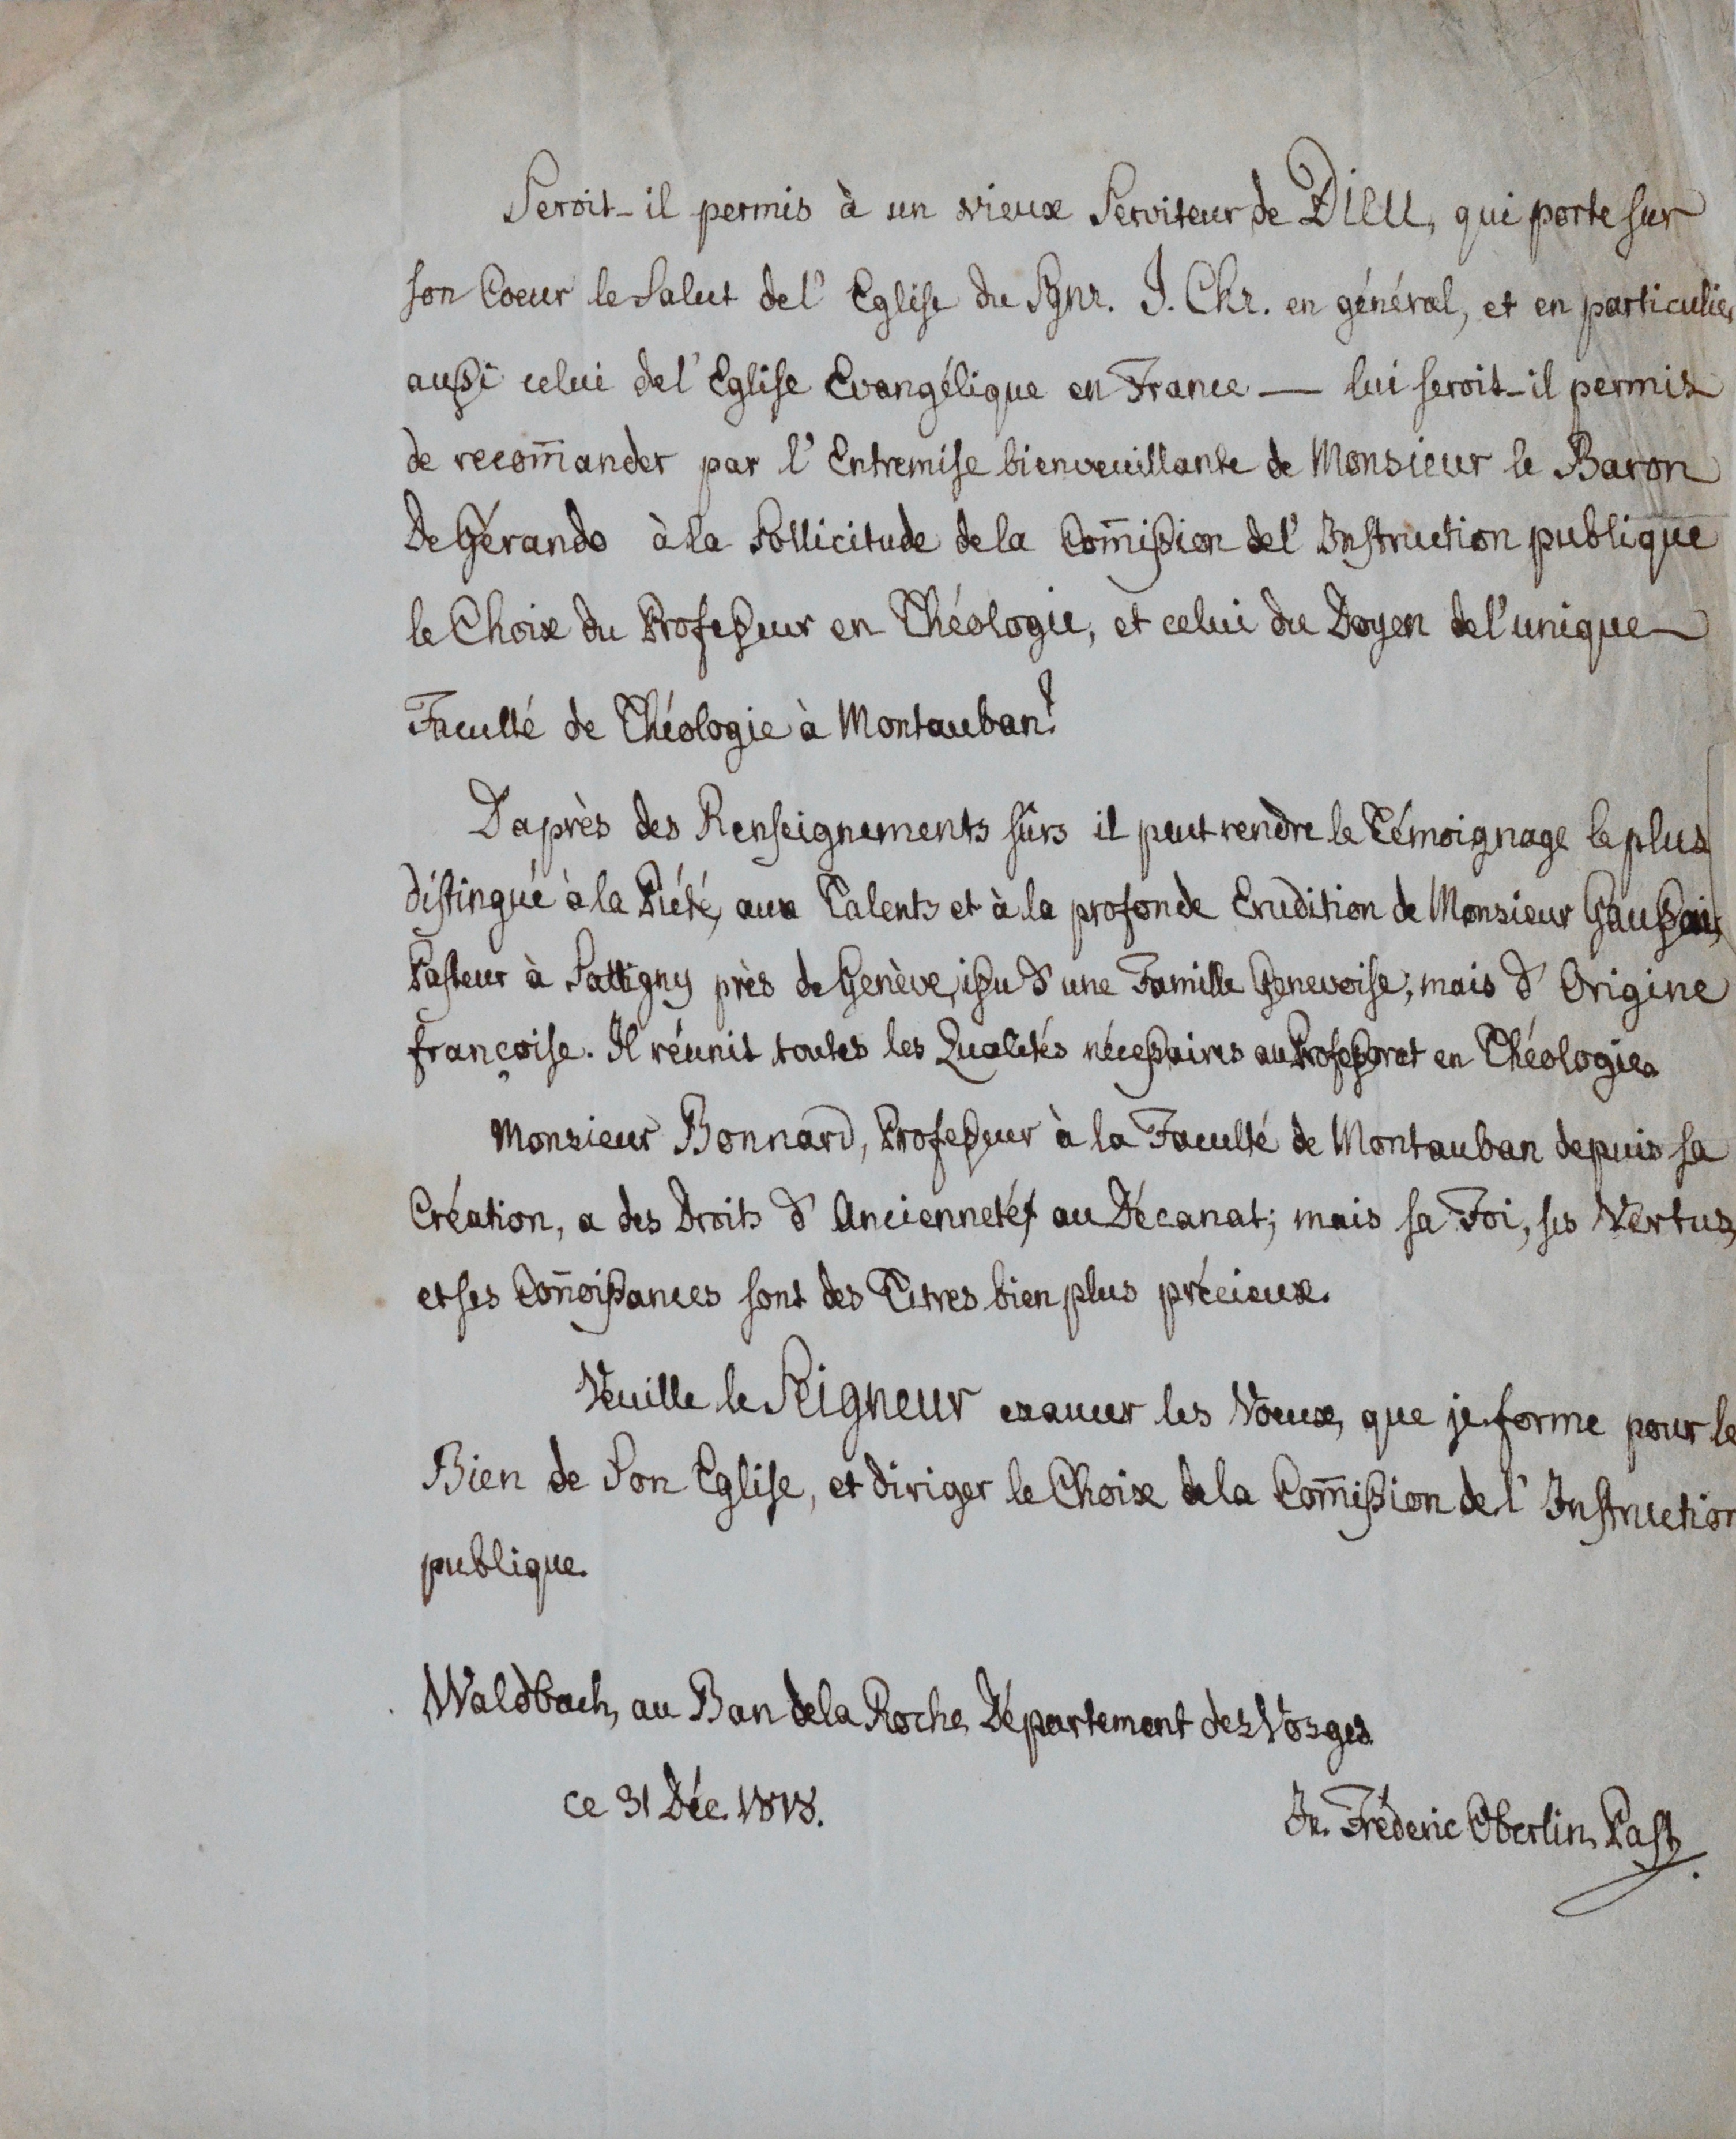 Seroit-il permis à un vieux Serviteur de Dieu, qui porte sur
son Coeur le Salut de l' Eglise du Sgnr. J. Chr. en général, et en particulier
aussi celui de l' Eglise Evangélique en France — lui seroit-il permis
de recom̄ander par l' Entremise bienveuillante de Monsieur le Baron
De Gérando à la Sollicitude de la Com̄ission de l' Instruction publique
le Choix du Professeur en Théologie, et celui du Doyen de l'unique
Faculté de Théologie à Montauban?
D'après des Renseignements sûrs il peut rendre le Témoignage le plus
distingué à la Piété, aux Talents et à la profonde Erudition de Monsieur Gaussain,
Pasteur à Sattigny près de Genève, issu d' une Famille Genevoise; mais d' Origine
françoise. Il réunit toutes les Qualités nécessaires au Professorat en Théologie.
Monsieur Bonnard, Professeur à la Faculté de Montauban depuis sa
Création, a des Droits d' Ancienneté au Décanat; mais sa Foi, ses Vertus,
et ses Con̄oissances sont des Titres bien plus précieux.
Veuille le Seigneur exaucer les Voeux, que je forme pour le
Bien de Son Eglise, et diriger le Choix de la Com̄ission de l' Instruction
publique.
Waldbach, au Ban de la Roche, Département des Vosges
ce 31 Déc. 1818.
Jn. Fréderic Oberlin, Past.